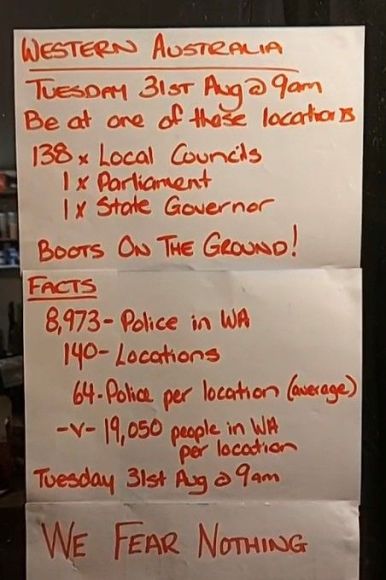 WESTERN AUSTRALIA
TUESDAY 31ST Aug @ 9am
Be at one of these locations
138 x Local Councils
1 x Parliament
1 x State Governor
BOOTS ON THE GROUND!
FACTS
8,973- Police in WA
140- Locations
64- Police per location (average)
-v- 19,050 people in WA
per location
Tuesday 31st Aug @ 9am
WE FEAR NOTHING